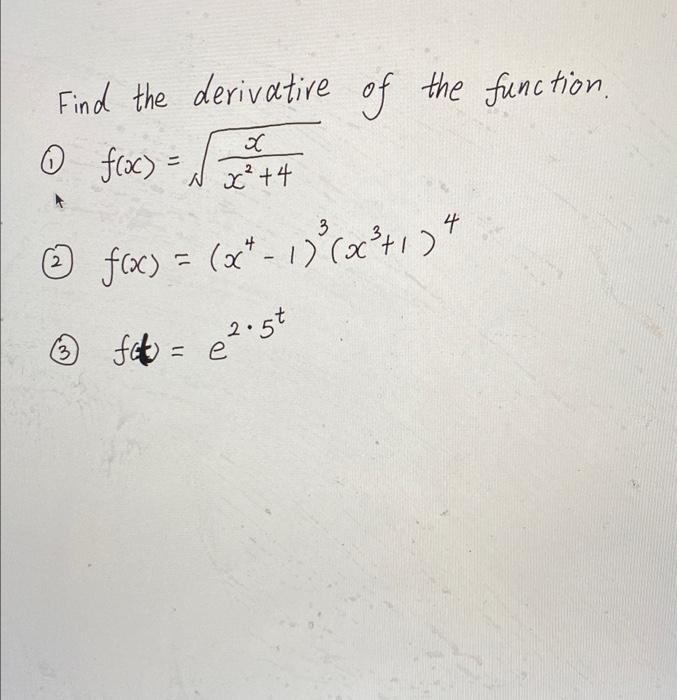 Find the derivative of the function.
① f(x) = √(x/(x²+4))
② f(x) = (x⁴ - 1)³(x³+1)⁴
③ f(t) = e^(2·5^t)